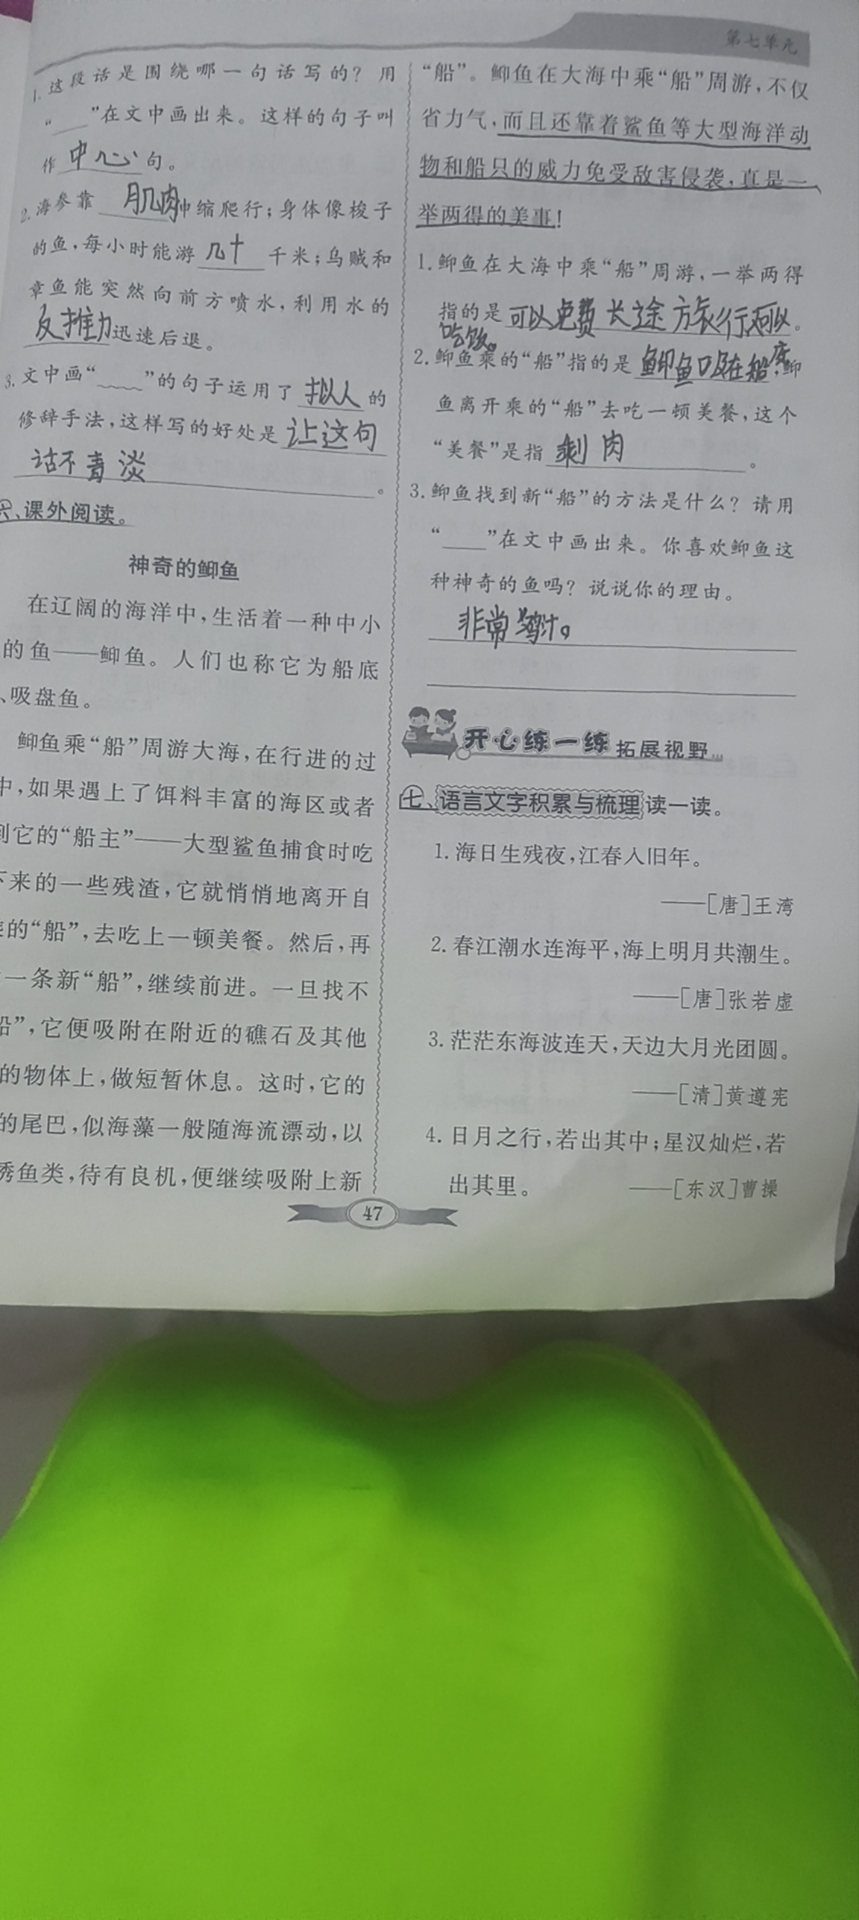 第七单元
1.这段话是围绕哪一句话写的？用
“____”在文中画出来。这样的句子叫
作中心句。
2.海参靠肌肉伸缩爬行；身体像梭子
的鱼，每小时能游几十千米；乌贼和
章鱼能突然向前方喷水，利用水的
反推力迅速后退。
3.文中画“﹏﹏”的句子运用了拟人的
修辞手法，这样写的好处是让这句
话不青淡。
六、课外阅读。
神奇的䲟鱼
在辽阔的海洋中，生活着一种中小
的鱼——䲟鱼。人们也称它为船底
、吸盘鱼。
䲟鱼乘“船”周游大海，在行进的过
中，如果遇上了饵料丰富的海区或者
到它的“船主”——大型鲨鱼捕食时吃
下来的一些残渣，它就悄悄地离开自
的“船”，去吃上一顿美餐。然后，再
一条新“船”，继续前进。一旦找不
船”，它便吸附在附近的礁石及其他
的物体上，做短暂休息。这时，它的
的尾巴，似海藻一般随海流漂动，以
诱鱼类，待有良机，便继续吸附上新
“船”。䲟鱼在大海中乘“船”周游，不仅
省力气，而且还靠着鲨鱼等大型海洋动
物和船只的威力免受敌害侵袭，真是一
举两得的美事！
1.䲟鱼在大海中乘“船”周游，一举两得
指的是可以免费长途旅行还可以。
吃饭。
2.䲟鱼乘的“船”指的是䲟鱼吸在船底，䲟
鱼离开乘的“船”去吃一顿美餐，这个
“美餐”是指剩肉。
3.䲟鱼找到新“船”的方法是什么？请用
“____”在文中画出来。你喜欢䲟鱼这
种神奇的鱼吗？说说你的理由。
非常
开心练一练 拓展视野
七、语言文字积累与梳理读一读。
1.海日生残夜，江春入旧年。
——[唐]王湾
2.春江潮水连海平，海上明月共潮生。
——[唐]张若虚
3.茫茫东海波连天，天边大月光团圆。
——[清]黄遵宪
4.日月之行，若出其中；星汉灿烂，若
出其里。 ——[东汉]曹操
47